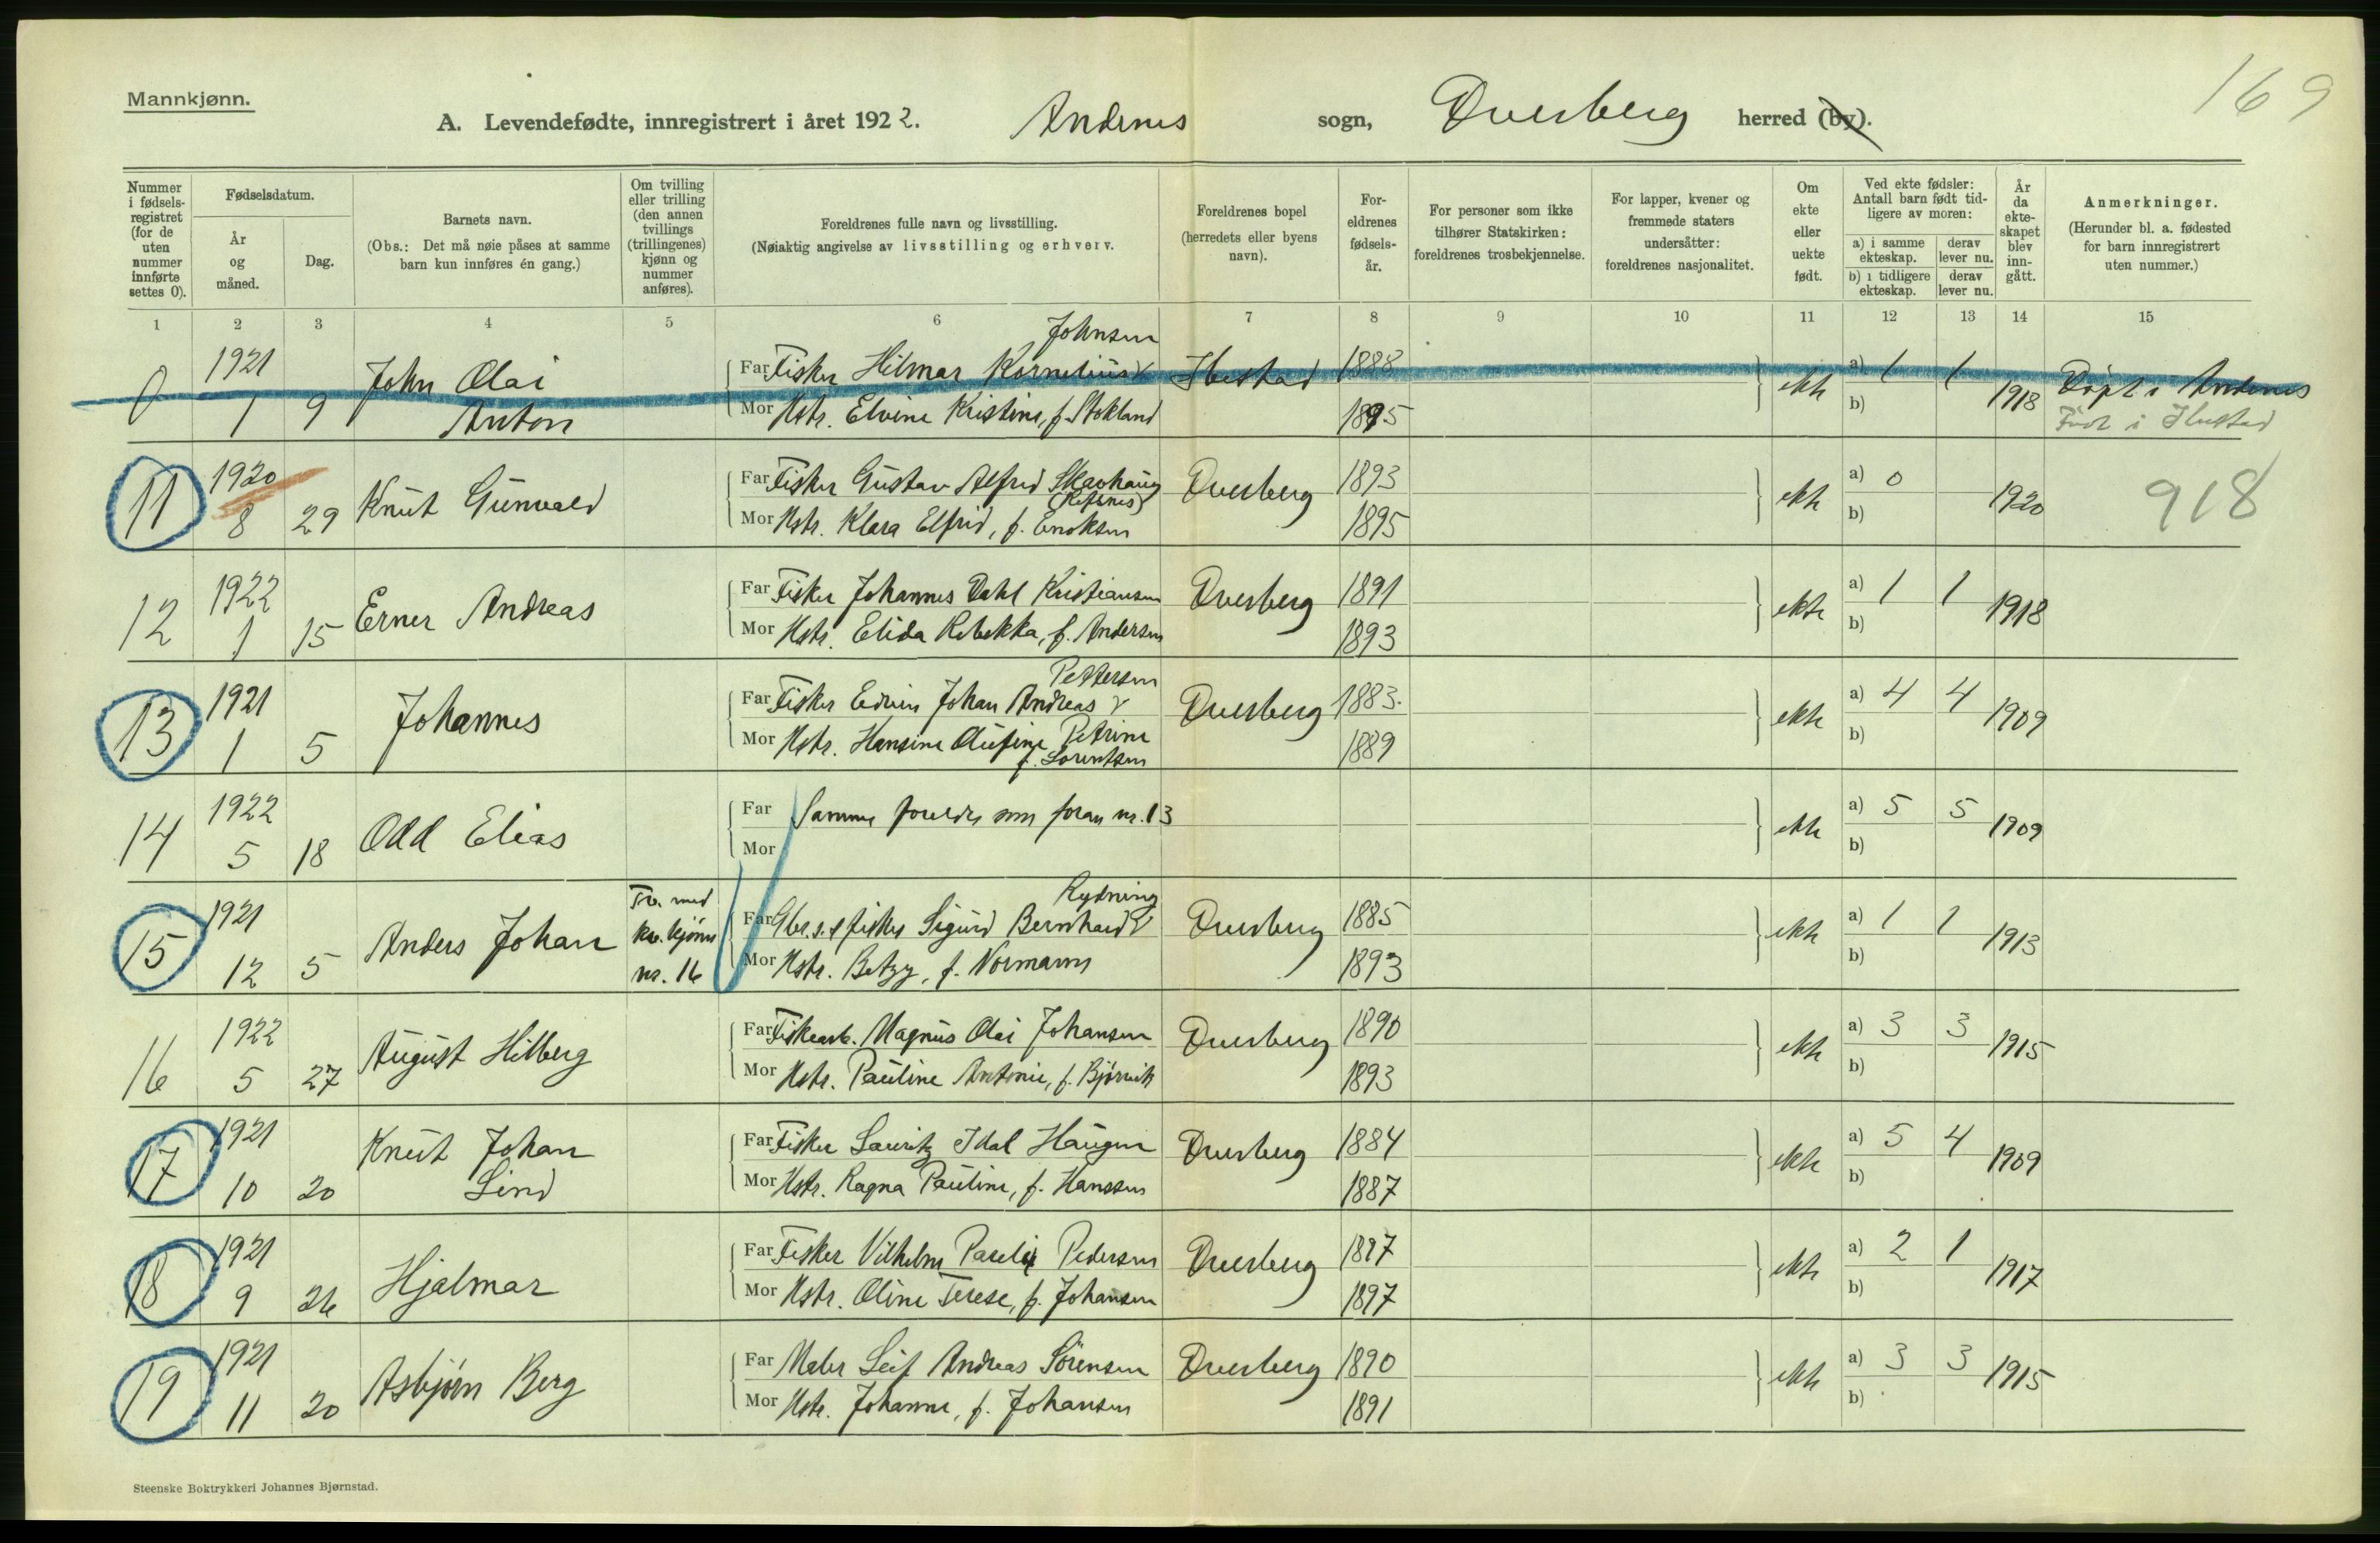 169
Mannkjønn.
A. Levendefødte, innregistrert i året 1922. Andenes sogn, Dverberg herred (by).
Nummer i fødsels-registret (for de uten nummer innførte settes 0).
Fødselsdatum.
År og måned.
Dag.
Barnets navn.
(Obs.: Det må nøie påses at samme barn kun innføres én gang.)
Om tvilling eller trilling (den annen tvillings (trillingenes) kjønn og nummer anføres).
Foreldrenes fulle navn og livsstilling.
(Nøiaktig angivelse av livsstilling og erhverv.
Foreldrenes bopel (herredets eller byens navn).
For-eldrenes fødsels-år.
For personer som ikke tilhører Statskirken: foreldrenes trosbekjennelse.
For lapper, kvener og fremmede staters undersåtter: foreldrenes nasjonalitet.
Om ekte eller uekte født.
Ved ekte fødsler: Antall barn født tid-ligere av moren:
a) i samme ekteskap.
derav lever nu.
b) i tidligere ekteskap.
derav lever nu.
År da ekte-skapet blev inn-gått.
Anmerkninger.
(Herunder bl. a. fødested for barn innregistrert uten nummer.)
1 2 3 4 5 6 7 8 9 10 11 12 13 14 15
0 1921 1 9 John Olai Anton
Far Fisker Hilmar Kornelius Johnsen Ibestad 1888
Mor Hstr. Elvine Kristine, f. Stokland 1895
ekte a) 1 1 b) 1918 Döpt i Andenes
Född i Ibestad
11 1920 8 29 Knut Gunvald
Far Fisker Gustav Alfred Skavhaug (Refsnes) Dverberg 1893
Mor Hstr. Klara Elfrid, f. Enoksen 1895
ekte a) 0 b) 1920 918
12 1922 1 15 Erner Andreas
Far Fisker Johannes Dahl Kristiansen Dverberg 1891
Mor Hstr. Elida Rebekka, f. Andersen 1893
ekte a) 1 1 b) 1918
13 1921 1 5 Johannes
Far Fisker Edvin Johan Andreas Pettersen Dverberg 1883.
Mor Hstr. Hansine Olufine Petrine f. Lorentsen 1889
ekte a) 4 4 b) 1909
14 1922 5 18 Odd Elias
Far Samme foreldre som foran nr. 13
Mor
ekte a) 5 5 b) 1909
15 1921 12 5 Anders Johan
Tv. med kv. kjønn nr. 16
Far Gbr.s. & fisker Sigurd Bernhard Rydning Dverberg 1885
Mor Hstr. Betzy, f. Normann 1893
ekte a) 1 1 b) 1913
16 1922 5 27 August Hilberg
Far Fiskearb. Magnus Olai Johansen Dverberg 1890
Mor Hstr. Pauline Antonie, f. Bjørnvik 1893
ekte a) 3 3 b) 1915
17 1921 10 20 Knut Johan Lind
Far Fisker Lauritz Idal Haugen Dverberg 1884
Mor Hstr. Ragna Pauline, f. Hanssen 1887
ekte a) 5 4 b) 1909
18 1921 9 26 Hjalmar
Far Fisker Vilhelm Pareli Pedersen Dverberg 1897
Mor Hstr. Oline Terese, f. Johansen 1897
ekte a) 2 1 b) 1917
19 1921 11 20 Asbjørn Berg
Far Maler Leif Andreas Sörensen Dverberg 1890
Mor Hstr. Johanne, f. Johansen 1891
ekte a) 3 3 b) 1915
Steenske Boktrykkeri Johannes Bjørnstad.